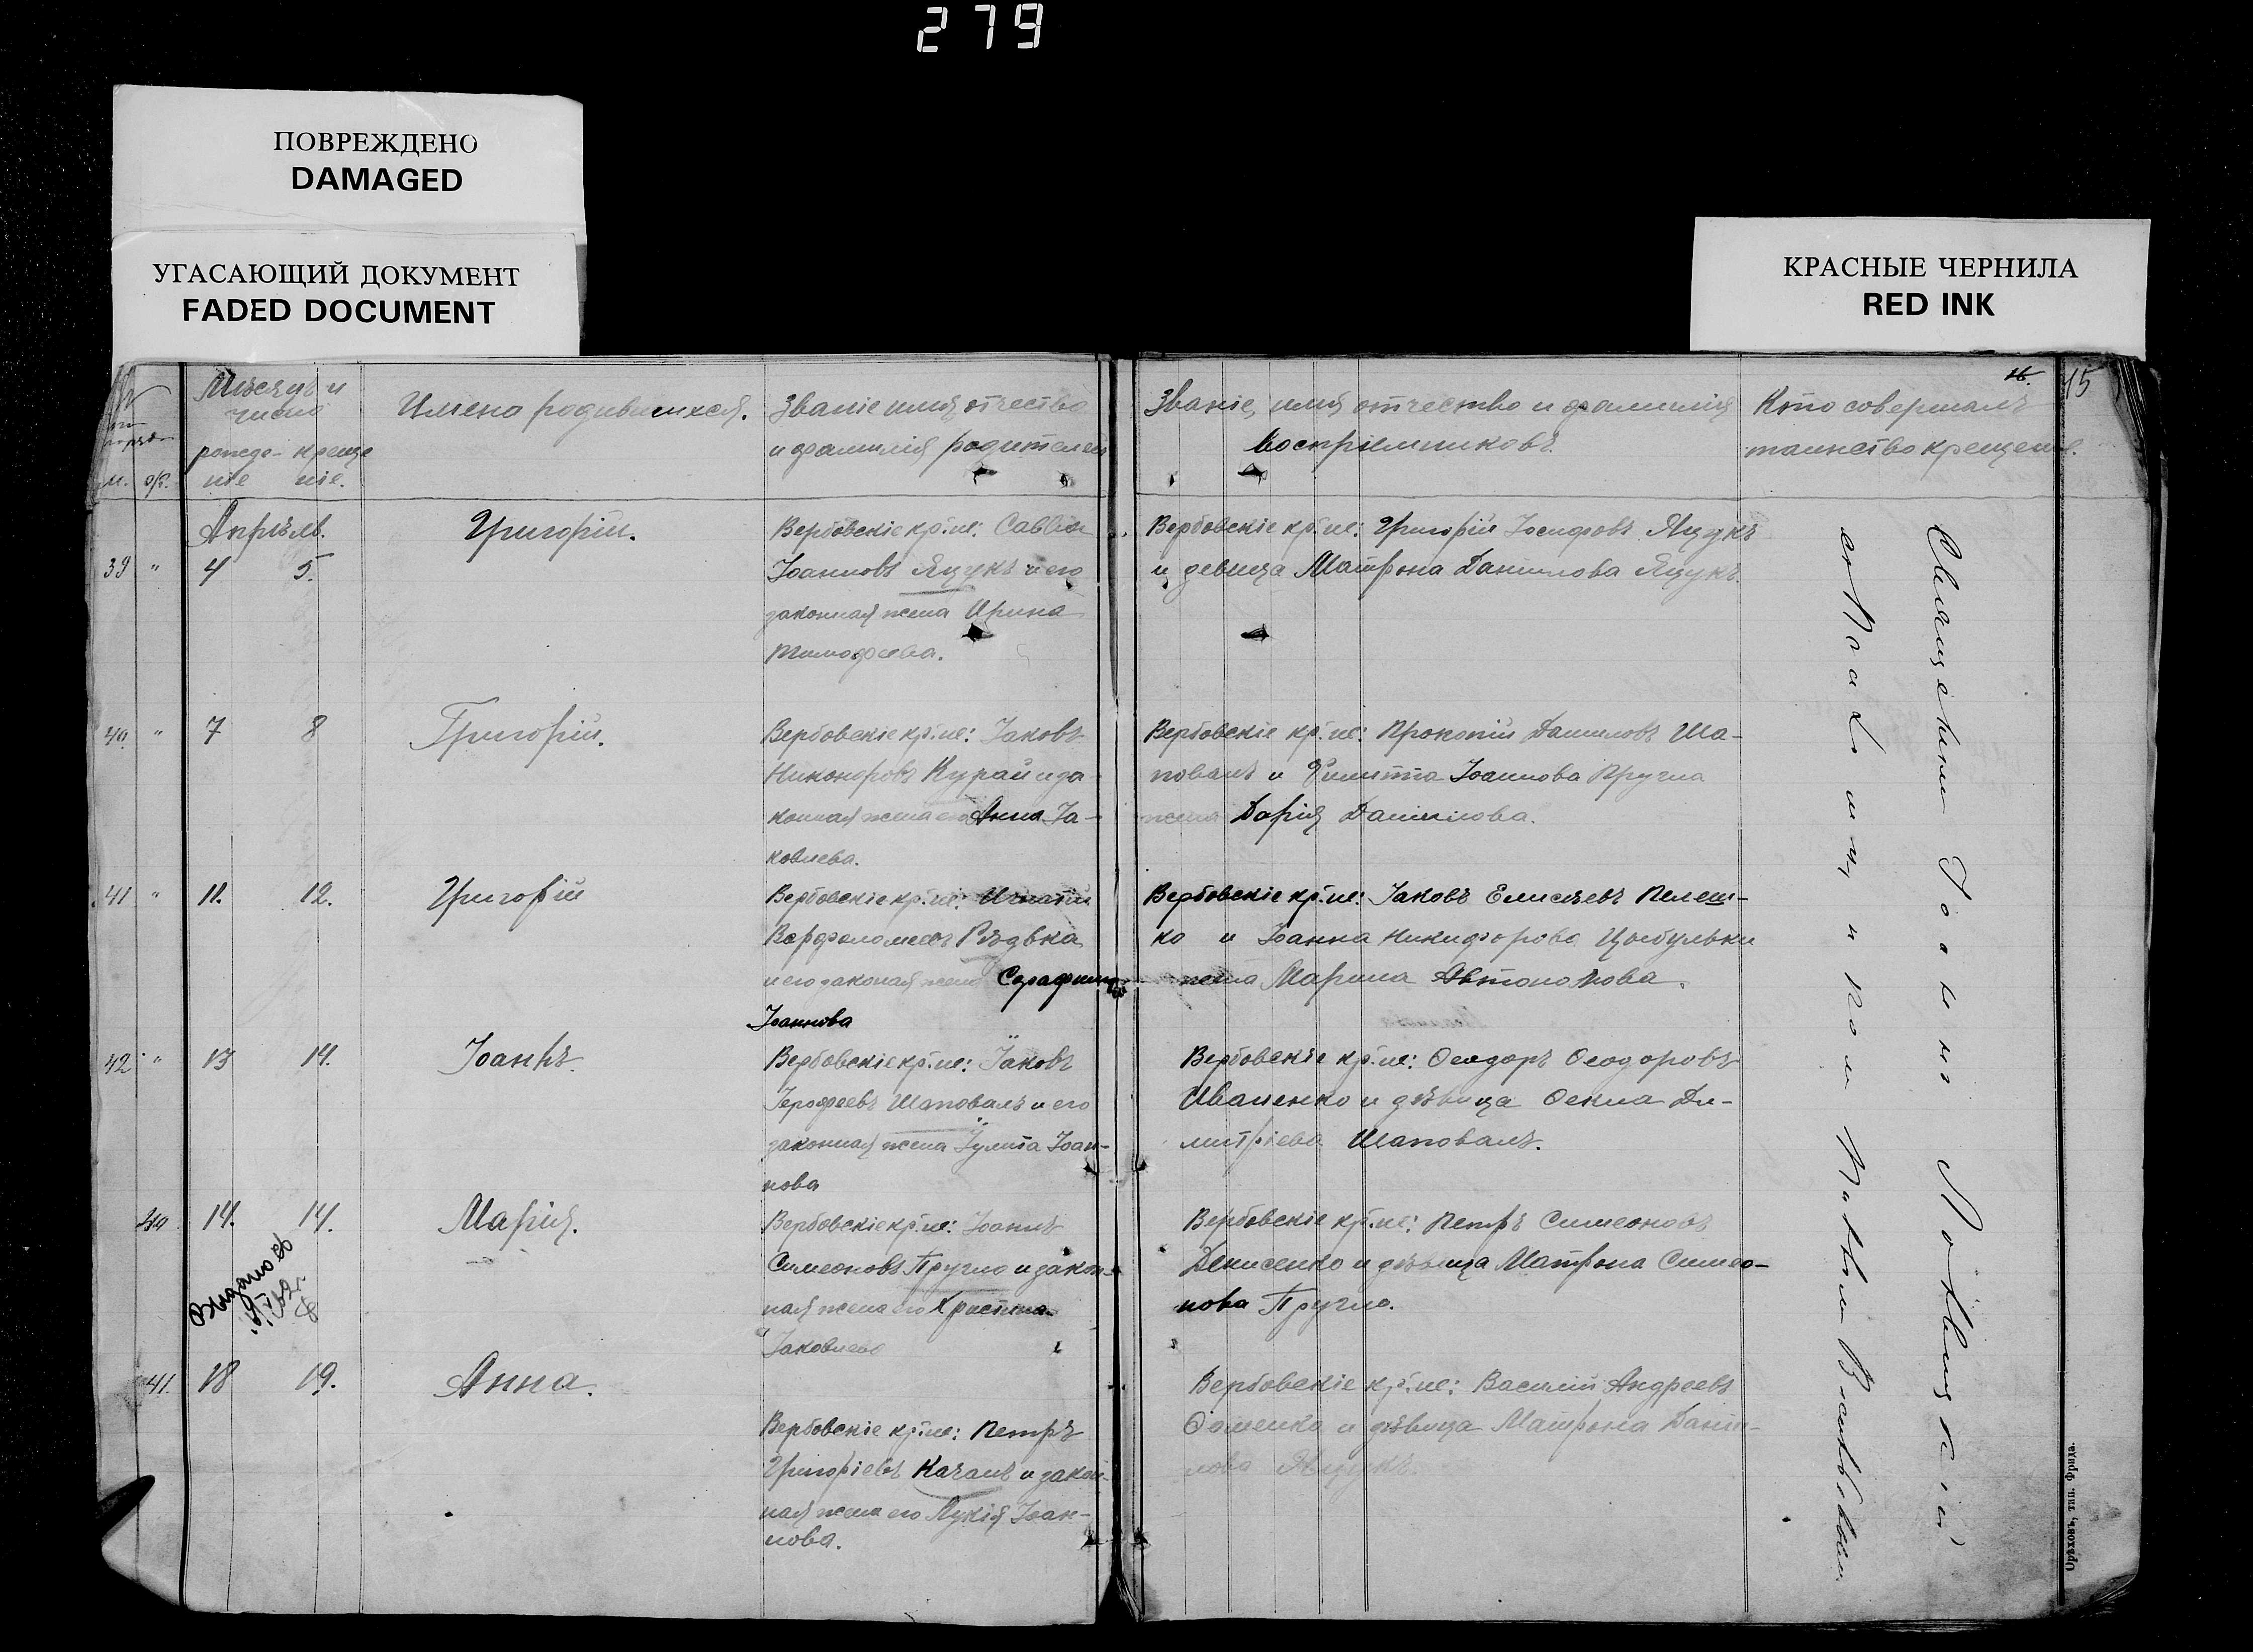 279
ПОВРЕЖДЕНО
DAMAGED
УГАСАЮЩИЙ ДОКУМЕНТ
FADED DOCUMENT
КРАСНЫЕ ЧЕРНИЛА
RED INK
16. 15
Мѣсяцъ и число
рожде- креще
ніе ніе.
м. ж.
Имена родившихся.
Званіе имя отчество
и фамилія родителей
Званіе, имя отчество и фамилія
воспріемниковъ.
Кто совершалъ
таинство крещенія.
Апрѣль.
39 " 4 5.
Григорій.
Вербовскіе кр.не: Савва
Іоанновъ Яцукъ и его
законная жена Ирина
Тимофеева.
Вербовскіе кр.не: Григорій Іосифовъ Яцукъ
и девица Матрона Данилова Яцукъ.
40 " 7 8
Григорій.
Вербовскіе кр.не: Іаковъ
Никоноровъ Курай и за
конная жена его Анна Іа-
ковлева.
Вербовскіе кр.не: Прокопій Даниловъ Ша-
повалъ и Филиппа Іоаннова Пругла
жена Дарія Даниилова.
41 " 11. 12.
Григорій
Вербовскіе кр.не: Игнатій
Варфоломеевъ Рѣдька
и его законая жена Серафима
Іоаннова
Вербовскіе кр.не: Іаковъ Елисѣевъ Пелеш-
ко и Іоанна Никифорова Цыбульки
жена Марина Автономова.
42 " 13 14.
Іоаннъ.
Вербовскіе кр.не: Іаковъ
Іерофеевъ Шаповалъ и его
законная жена Іулита Іоан-
нова
Вербовскіе кр.не: Ѳеодоръ Ѳеодоровъ
Иваненко и дѣвица Ѳекла Ди-
митріева Шаповалъ.
40 14. 14.
Марія.
Выдано св
Вербовскіе кр.не: Іоаннъ
Симеоновъ Пругло и закон-
ная жена его Христина
Іаковлева
Вербовскіе кр.не: Петръ Симеоновъ
Денисенко и дѣвица Матрона Симео-
нова Пругло.
41. 18 19.
Анна.
Вербовскіе кр.не: Петръ
Григоріевъ Качанъ и закон-
ная жена его Лукія Іоан-
нова.
Вербовскіе кр.не: Василій Андреевъ
Ѳоменко и дѣвица Матрона Данiи-
лова Яцукъ.
Священникъ Іоаннъ
съ Псаломщикомъ
Орѣховъ, тип. Фрида.